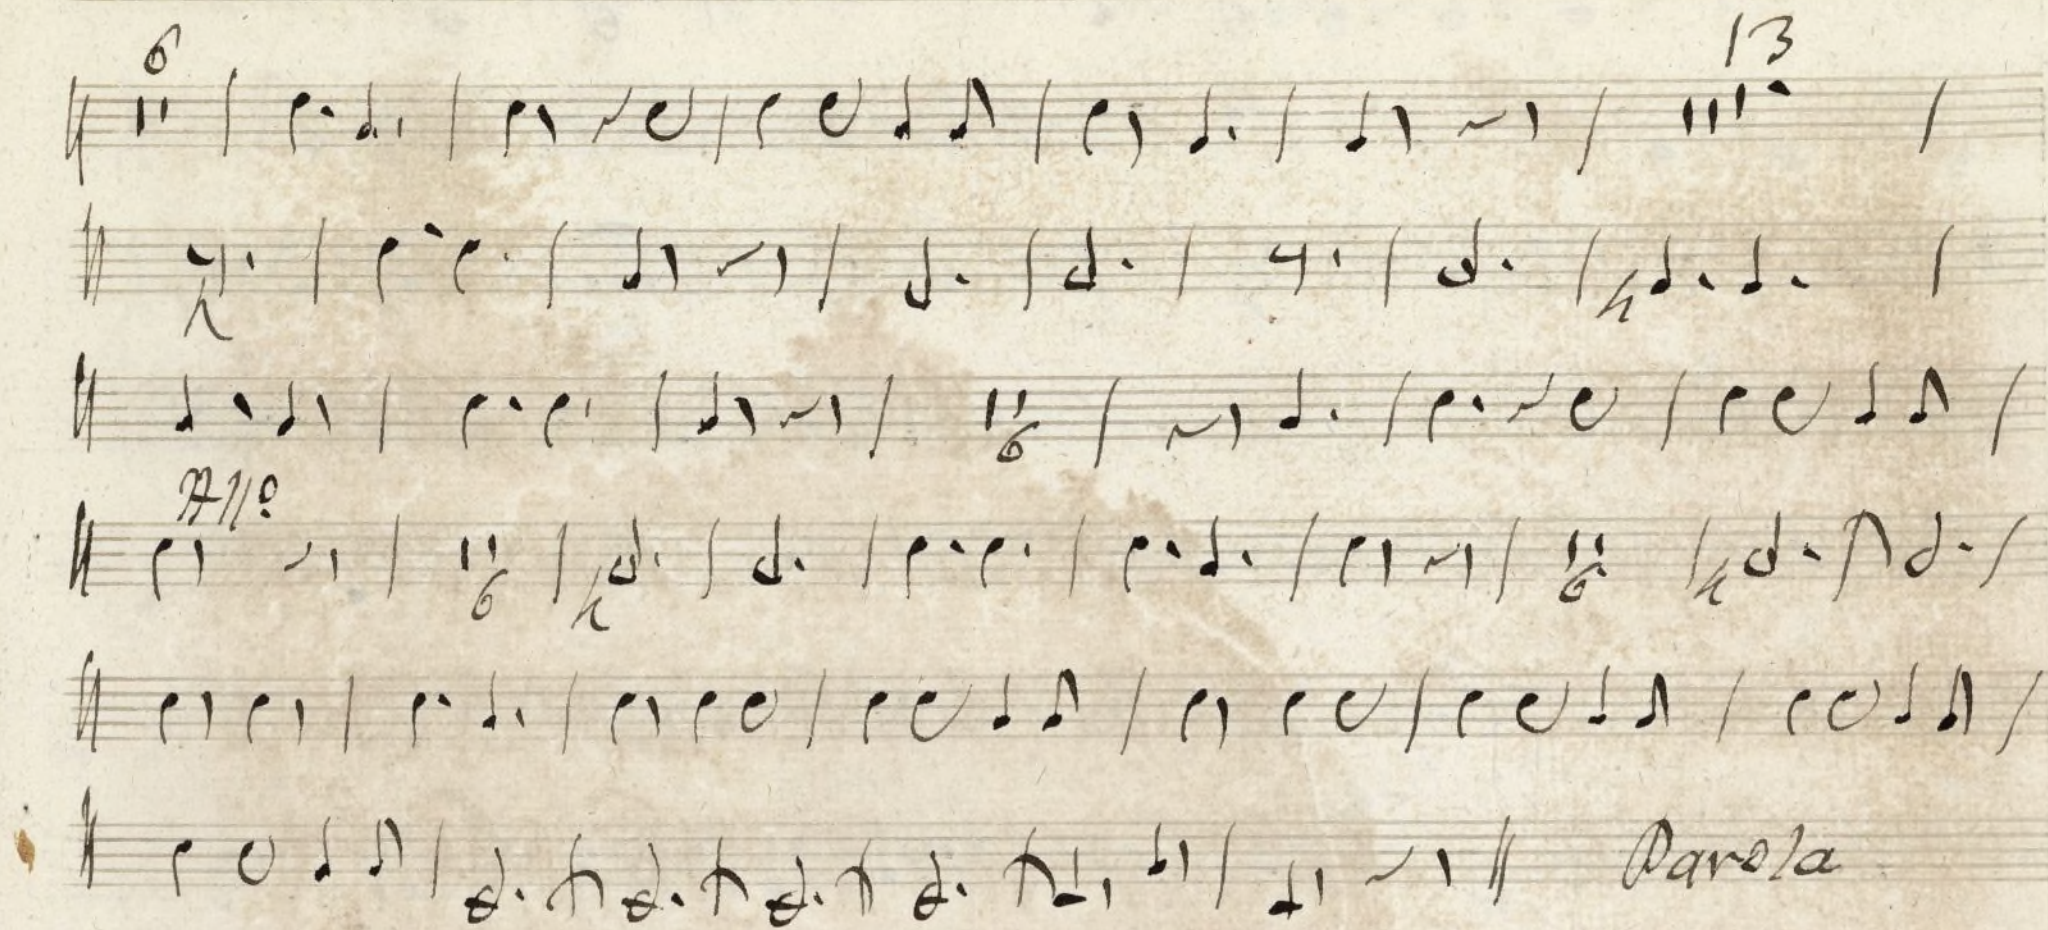 6 13
6
Allo
6 6
Parola